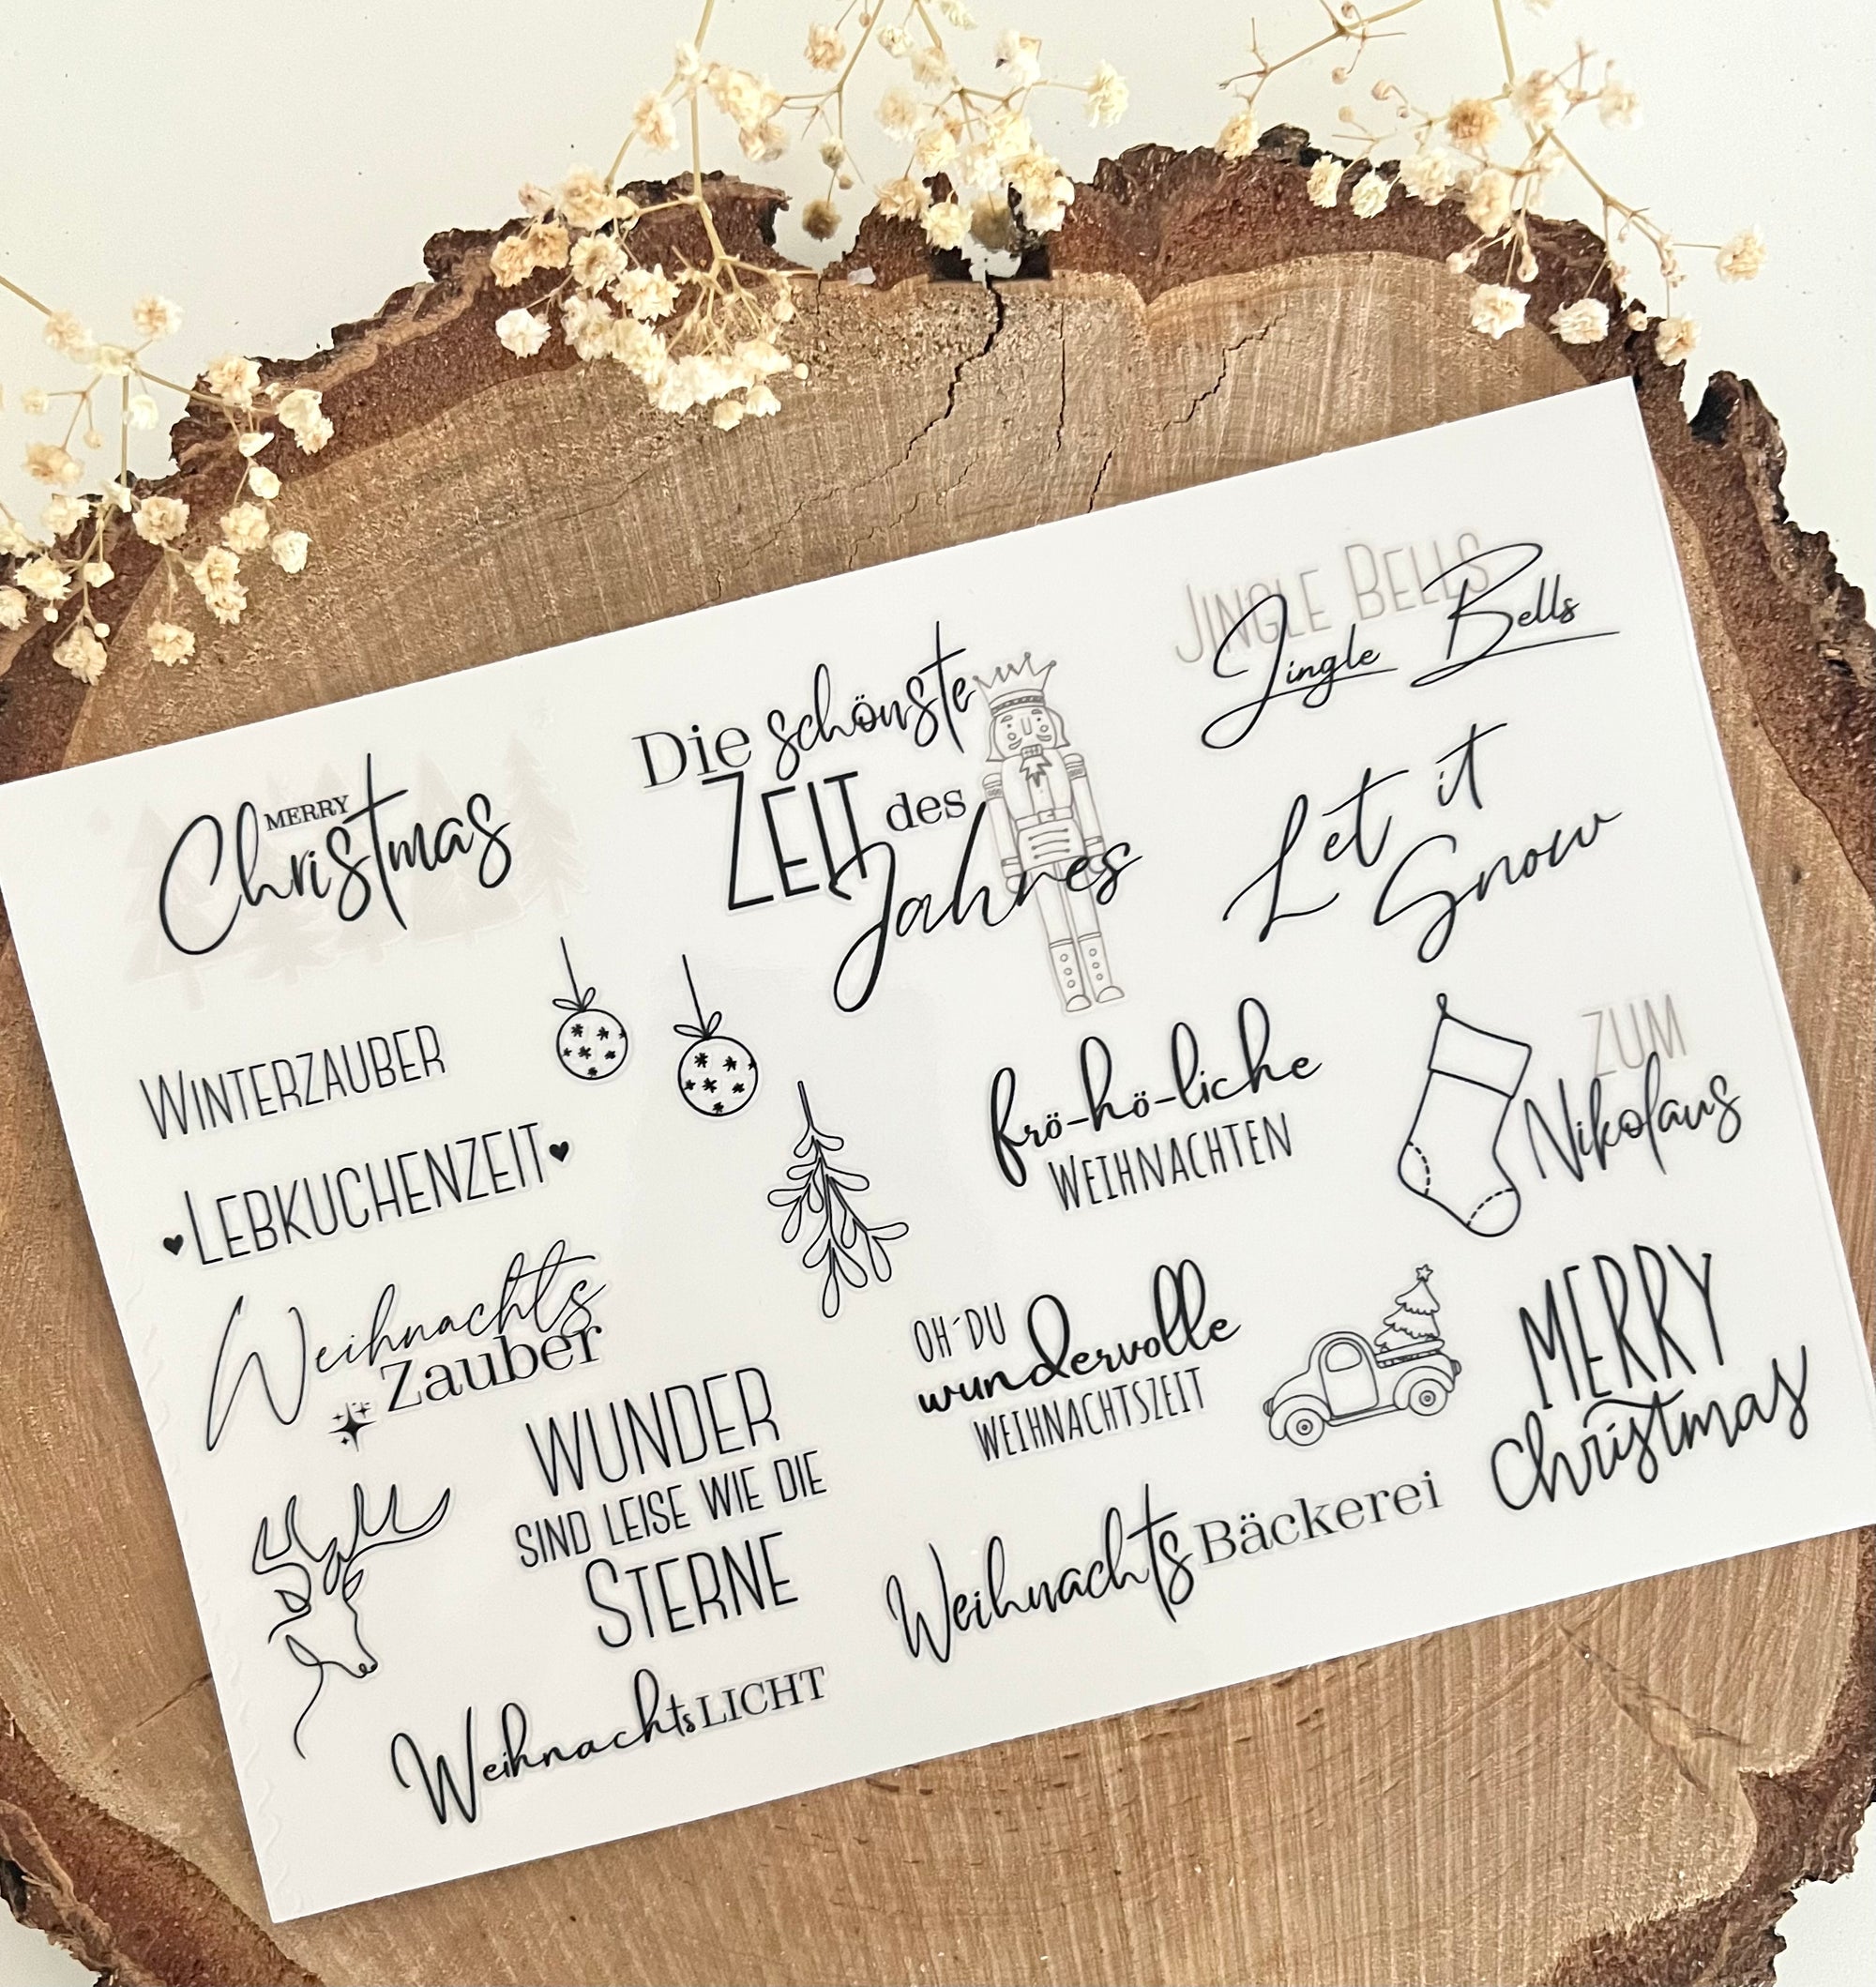 MERRY
Christmas
Die schönste
ZEIT des
Jahres
JINGLE BELLS
Jingle Bells
Let it
Snow
WINTERZAUBER
LEBKUCHENZEIT
Weihnachts
Zauber
frö-hö-liche
WEIHNACHTEN
ZUM
Nikolaus
OH´DU
wundervolle
WEIHNACHTSZEIT
MERRY
christmas
WUNDER
SIND LEISE WIE DIE
STERNE
WeihnachtsBäckerei
WeihnachtsLICHT